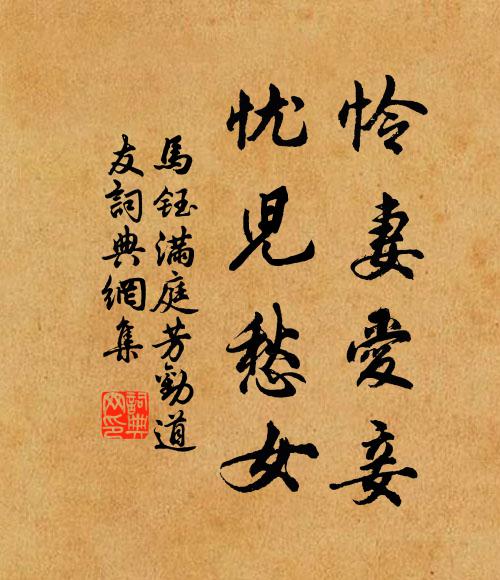 怜妻愛妾
忧児愁女
馬鈺满庭芳勸道
友詞典網集
詞典
网印